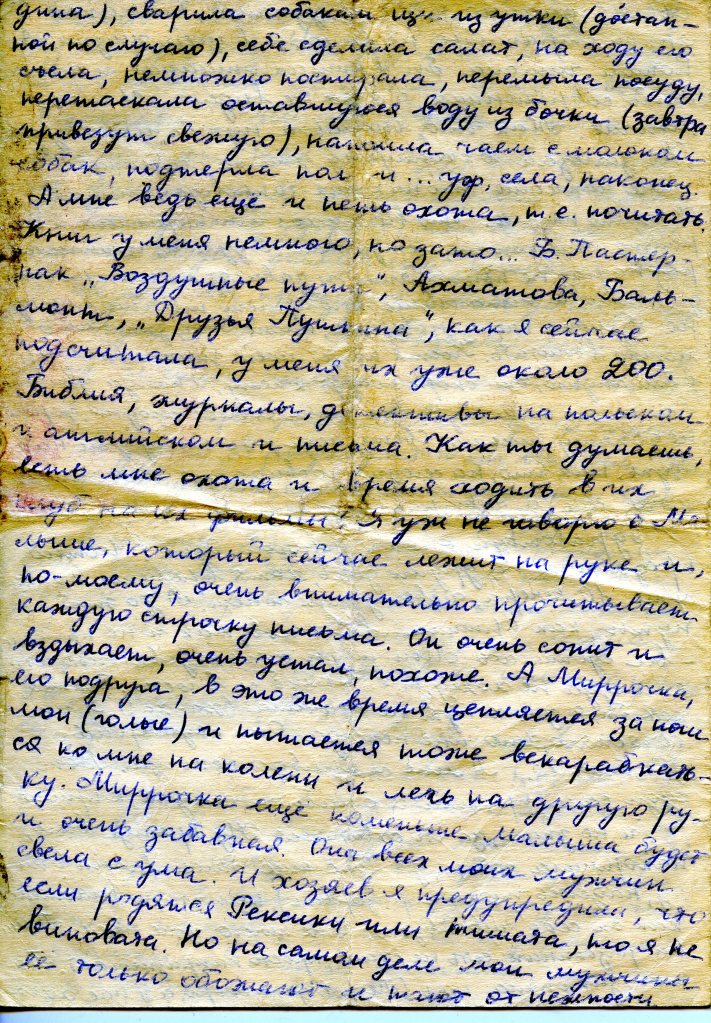 дина), сварила собакам щи из утки (достан-
ной по случаю), себе сделала салат, на ходу его
съела, немножко постирала, перемыла посуду,
перетаскала оставшуюся воду из бочки (завтра
привезут свежую), напоила чаем с молоком
собак, подтерла пол и... уф, села, наконец.
А мне ведь ещё и петь охота, т.е. почитать.
Книг у меня немного, но зато... Б. Пастер-
нак „Воздушные пути", Ахматова, Баль-
монт, „Друзья Пушкина", как я сейчас
подсчитала, у меня их уже около 200.
Библия, журналы, детективы на польском
и английском и письма. Как ты думаешь,
есть мне охота и время ходить в их
клуб на их фильмы? Я уж не говорю о Ма-
лыше, который сейчас лежит на руке и,
по-моему, очень внимательно прочитывает
каждую строчку письма. Он очень сопит и
вздыхает, очень устал, похоже. А Миррочка,
его подруга, в это же время цепляется за ноги
мои (голые) и пытается тоже вскарабкать-
ся ко мне на колени и лечь на другую ру-
ку. Миррочка ещё поменьше малыша будет
и очень забавная. Она всех моих мужчин
свела с ума. И хозяев я предупредила, что
если родятся Рексики или тимата, то я не
виновата. Но на самом деле мои мужчины
её только обожают и тают от нежности